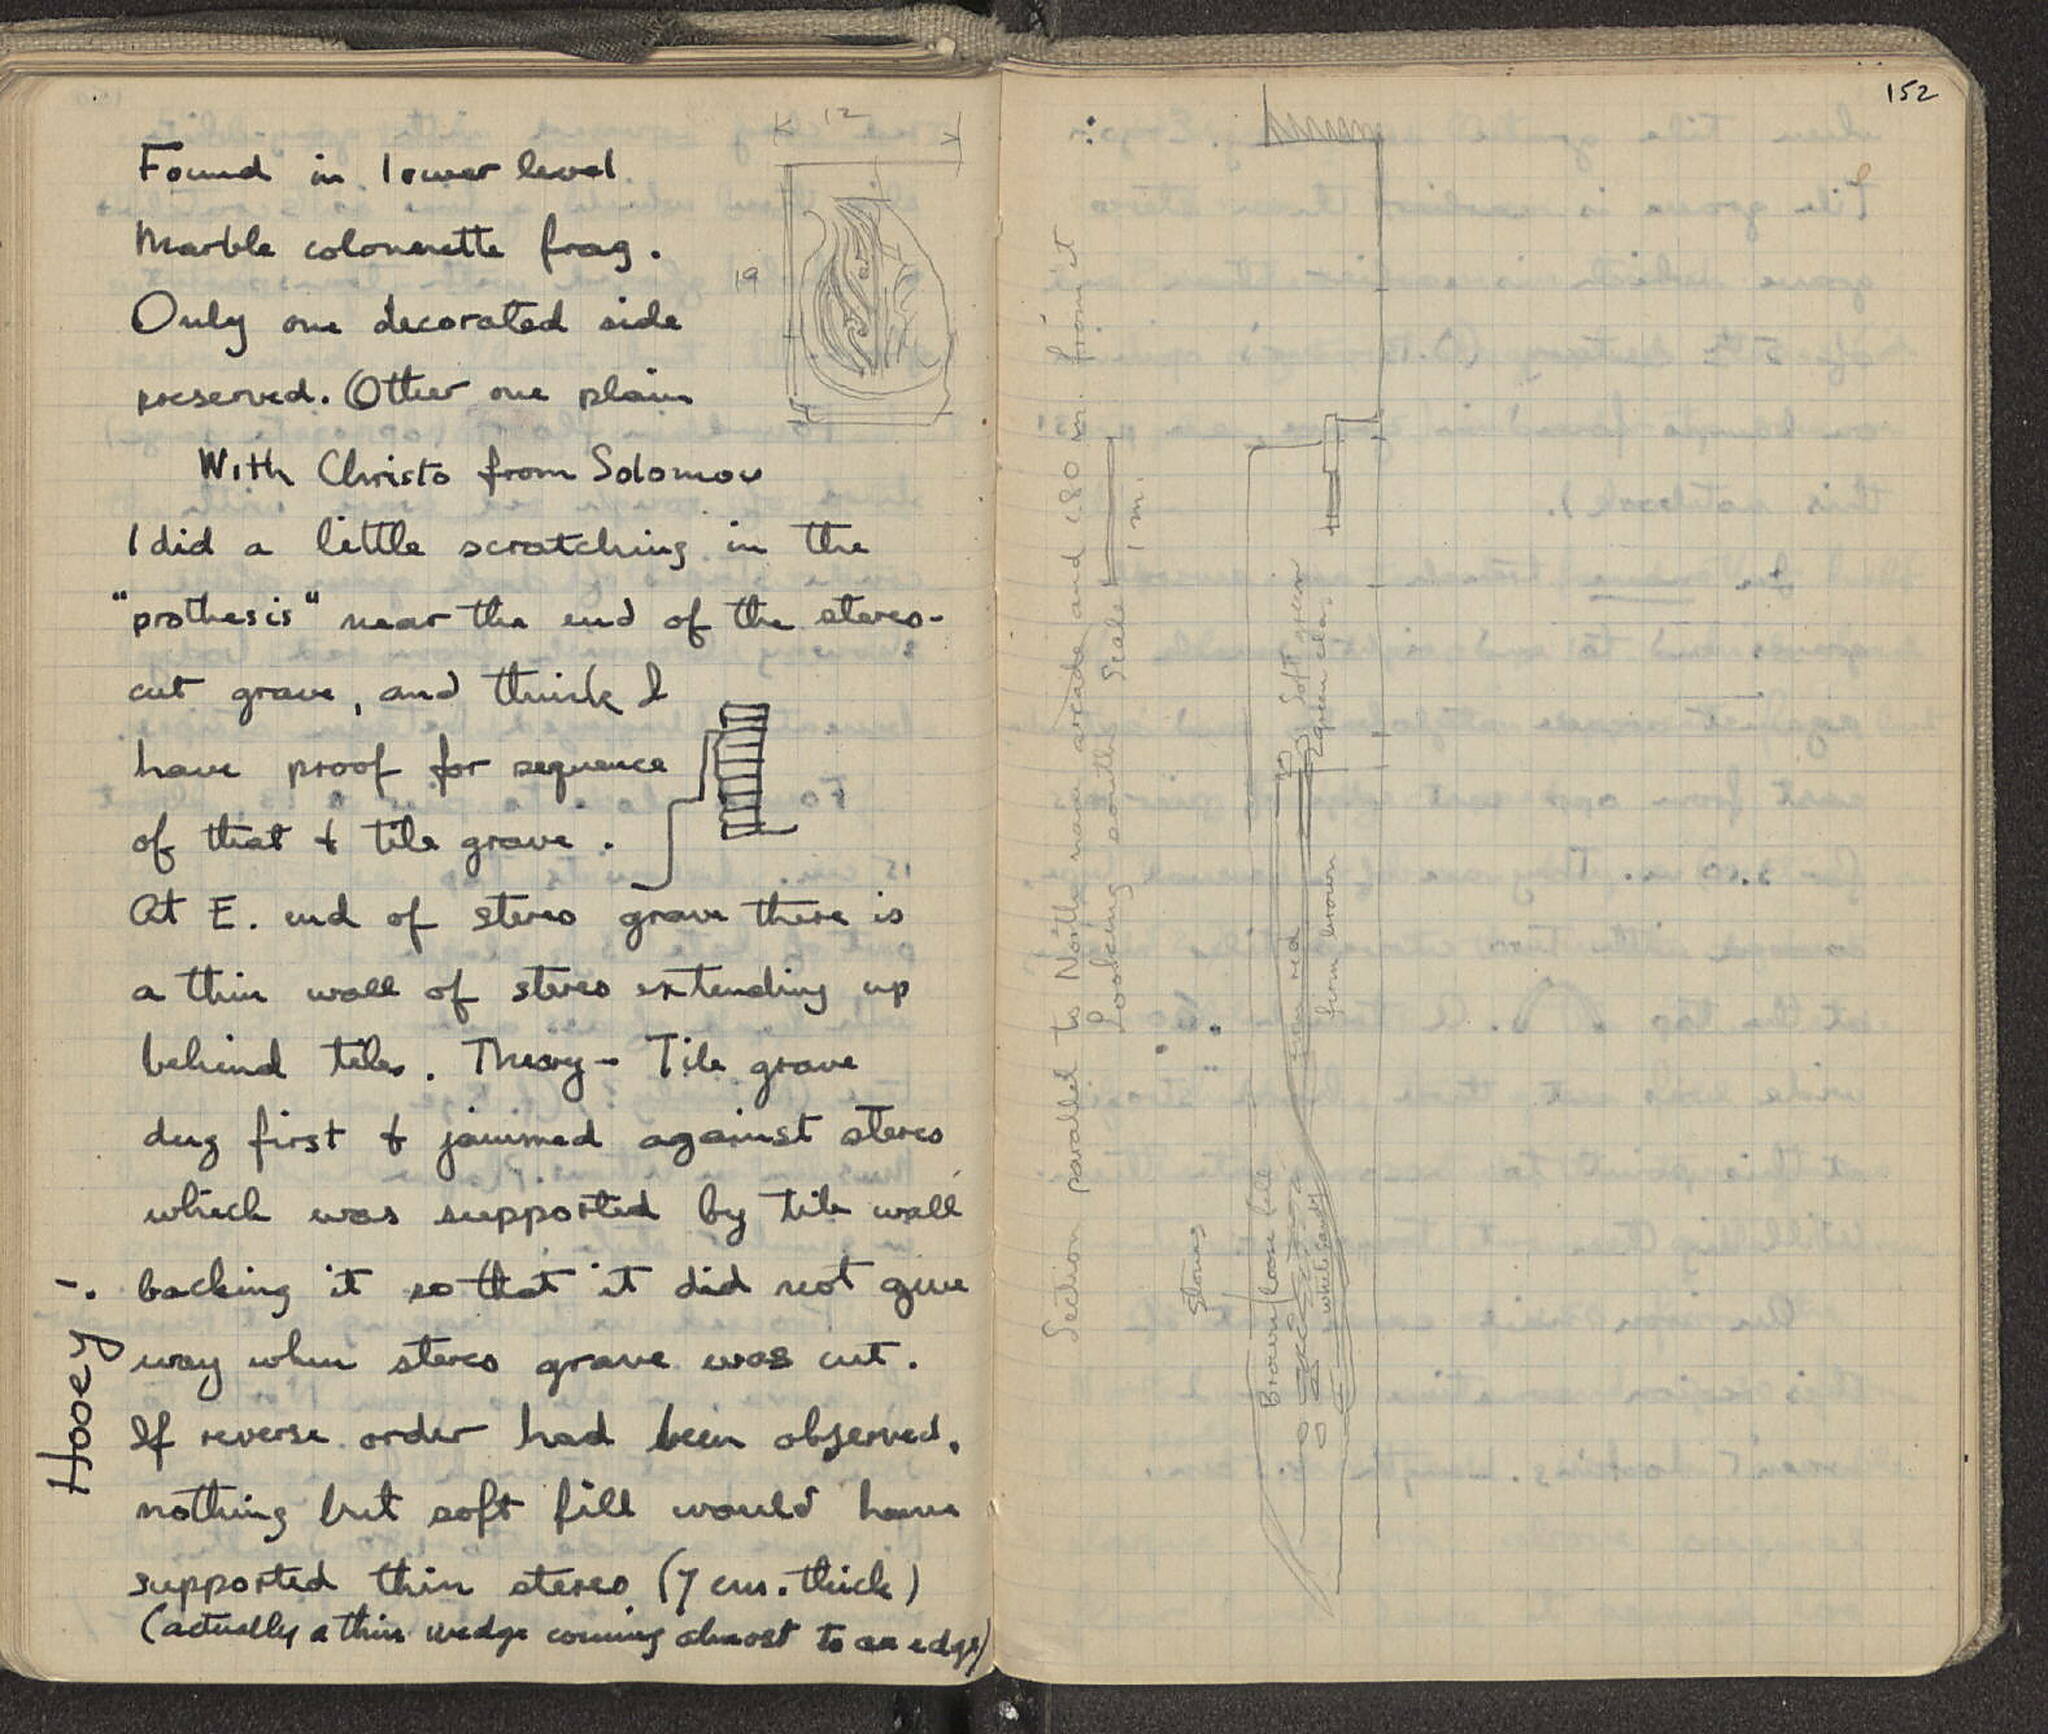 Found in lower level
Marble colonnette frag.
Only one decorated side
preserved. Other one plain
12
19
With Christo from Solomou
I did a little scratching in the
"prothesis" near the end of the stereo-
cut grave, and think I
have proof for sequence
of that & tile grave.
At E. end of stereo grave there is
a thin wall of stereo extending up
behind tiles. Theory - Tile grave
dug first & jammed against stereo
which was supported by tile wall
backing it so that it did not give
way when stereo grave was cut.
If reverse order had been observed,
nothing but soft fill would have
supported thin stereo (7 cms. thick)
(actually a thin wedge coming almost to an edge)
Hooey
152
Section parallel to North nave arcade and 1.80 m. from it
Looking south Scale 1 m.
Stones
Brown loose fill
white sandy
firm red
firm brown
Soft green
green clay